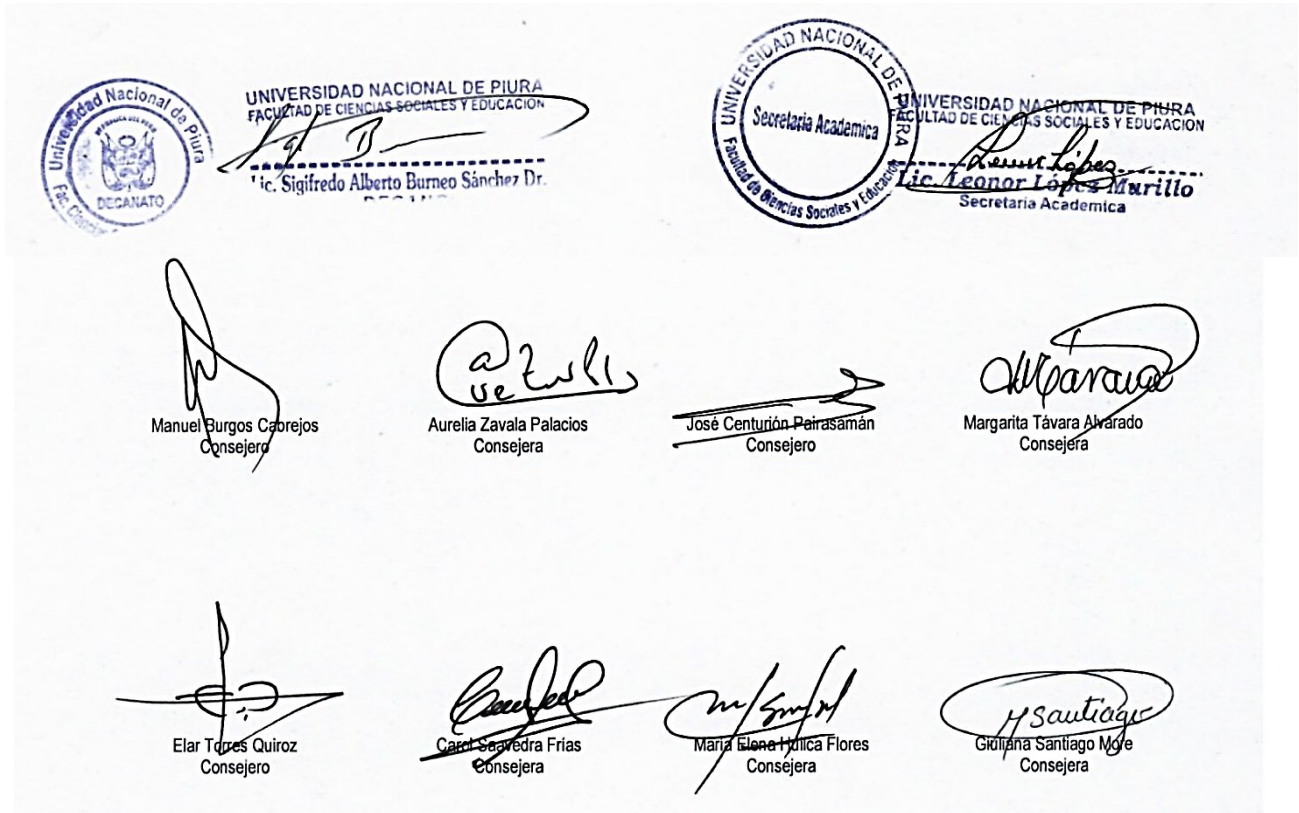 Universidad Nacional de Piura
DECANATO
UNIVERSIDAD NACIONAL DE PIURA
FACULTAD DE CIENCIAS SOCIALES Y EDUCACION
Lic. Sigifredo Alberto Burneo Sánchez Dr.
UNIVERSIDAD NACIONAL DE PIURA
Secretaria Academica
Facultad de Ciencias Sociales y Educación
UNIVERSIDAD NACIONAL DE PIURA
FACULTAD DE CIENCIAS SOCIALES Y EDUCACION
Lic. Leonor López Murillo
Secretaria Academica
Manuel Burgos Cabrejos
Consejero
Aurelia Zavala Palacios
Consejera
José Centurión Pairasamán
Consejero
Margarita Távara Alvarado
Consejera
Elar Torres Quiroz
Consejero
Carol Saavedra Frías
Consejera
María Elena Flores
Consejera
Santiago
Giuliana Santiago More
Consejera